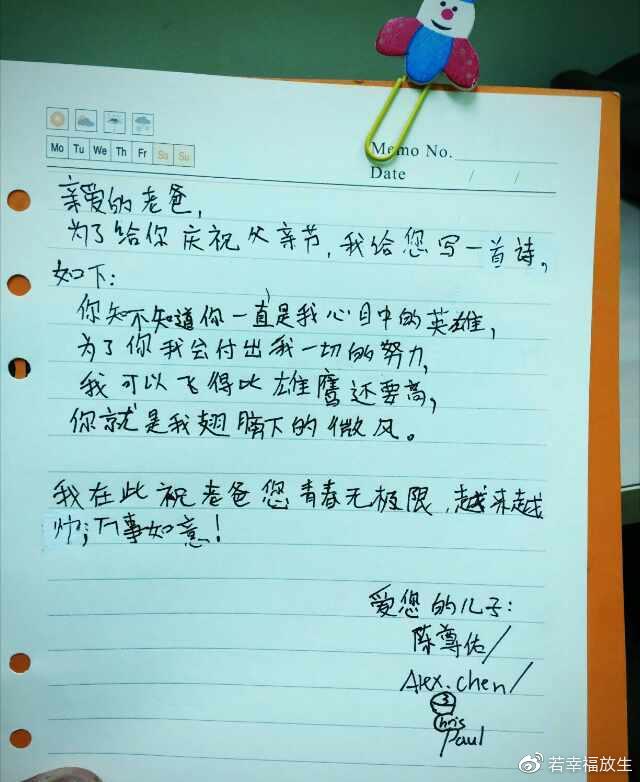 Mo Tu We Th Fr Sa Su
Memo No.
Date / /
亲爱的老爸,
为了给你庆祝父亲节,我给您写一首诗,
如下:
你知不知道你一直是我心目中的英雄,
为了你我会付出我一切的努力,
我可以飞得比雄鹰还要高,
你就是我翅膀下的微风。
我在此祝老爸您青春无极限,越来越
帅;万事如意!
爱您的儿子:
陈尊佑/
Alex.chen/
3
Chris
Paul
若幸福放生